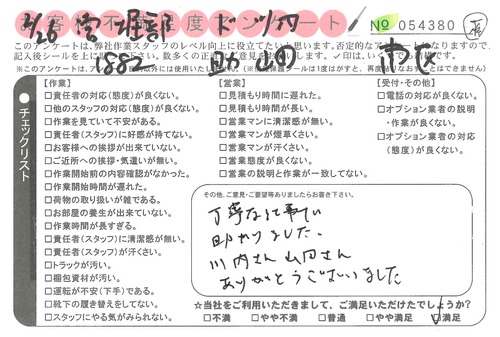 お客様不満足度アンケート
№ 054380
2/26 営 堀部
1882 助 山口
このアンケートは、弊社作業スタッフのレベル向上に役立てたいと思います。否定的なアンケートになりますので、
記入後シールを上に
【作業】
□責任者の対応(態度)が良くない。
□他のスタッフの対応(態度)が良くない。
□作業を見ていて不安がある。
□責任者(スタッフ)に好感が持てない。
□お客様への挨拶が出来ていない。
□ご近所への挨拶・気遣いが無い。
□作業開始前の内容確認がなかった。
□作業開始時間が遅れた。
□荷物の取り扱いが雑である。
□お部屋の養生が出来ていない。
□作業時間が長すぎる。
□責任者(スタッフ)に清潔感が無い。
□責任者(スタッフ)が汗くさい。
□トラックが汚い。
□梱包資材が汚い。
□運転が不安(下手)である。
□靴下の履き替えをしてない。
□スタッフにやる気がみられない。
【営業】
□見積もり時間に遅れた。
□見積もり時間が長い。
□営業マンに清潔感が無い。
□営業マンが煙草くさい。
□営業マンが汗くさい。
□営業態度が良くない。
□営業の説明と作業が一致してない。
【受付・その他】
□電話の対応が良くない。
□オプション業者の説明
・作業が良くない。
□オプション業者の対応
(態度)が良くない。
チェックリスト
その他、ご意見・ご要望等ありましたらお書き下さい。
助かりました。
川内さん 山口さん
ありがとうございました
☆当社をご利用いただきまして、ご満足いただけたでしょうか?
□不満 □やや不満 □普通 □やや満足 □満足